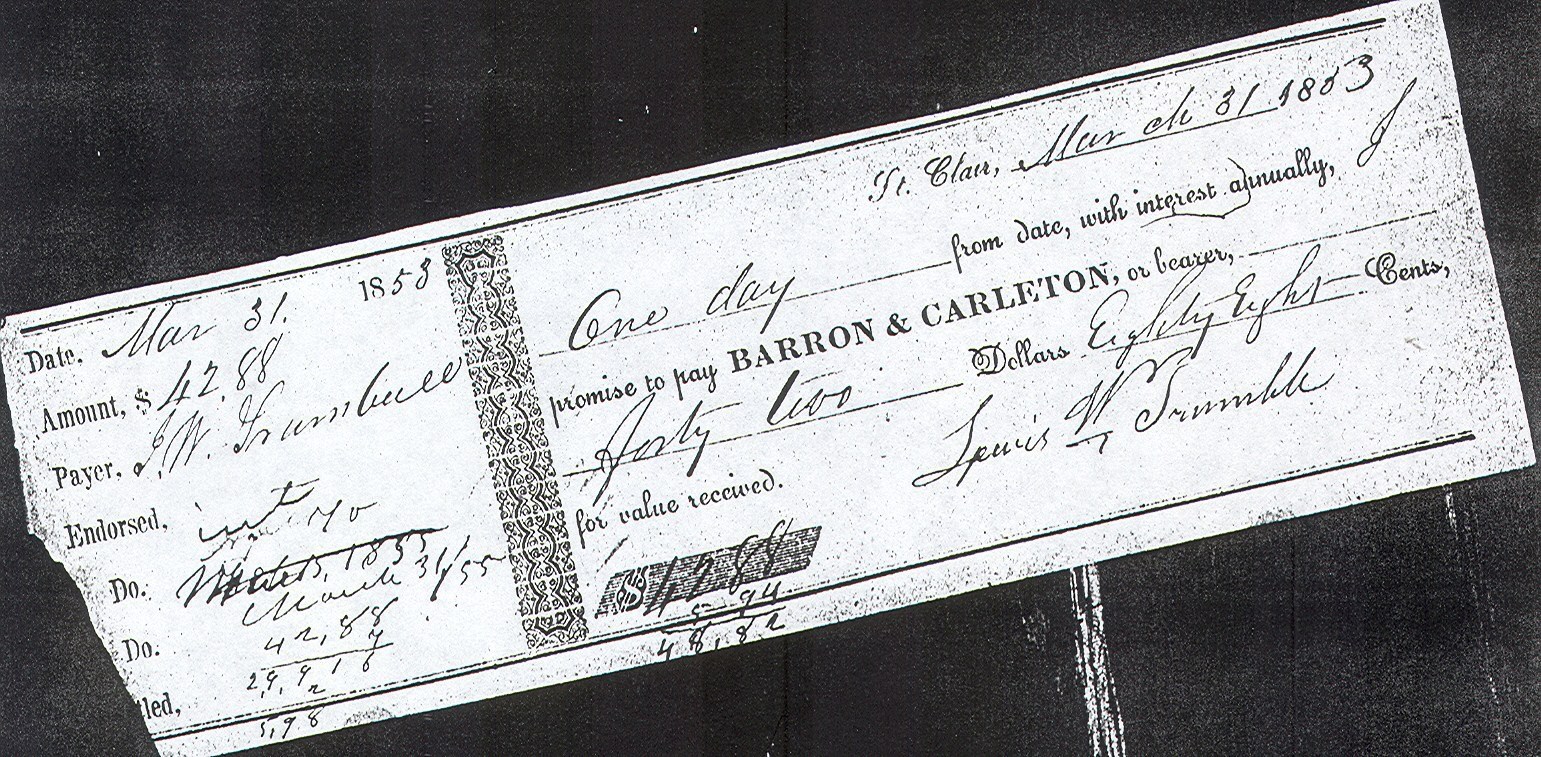 Date. Mar 31. 1853
Amount, $ 42.88
Payer, J. W. Trumbull
Endorsed, int
Do. March 31/55
42,88
7
Do.
29,9 1 6
2
led,
5,98
St. Clair, March 31 1853
One day from date, with interest annually, I
promise to pay BARRON & CARLETON, or bearer,
forty two Dollars Eighty Eight Cents,
for value received.
Lewis W Trumble
$ 42 88
5 94
48,82